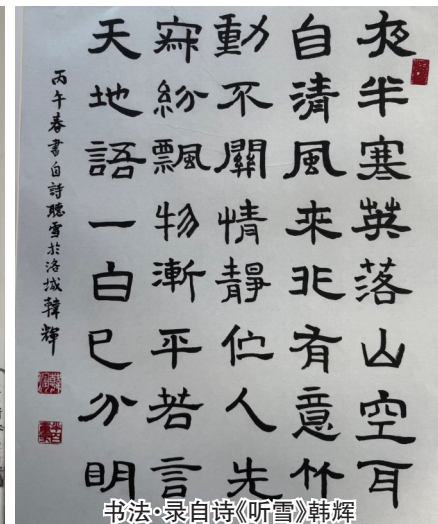 夜半寒英落山空耳
自清風来非有意竹
動不關情静伫人先
寐紛飄物漸平若言
天地語一白已分明
丙午春書自詩聽雪於洛城韓輝
书法·录自诗《听雪》韩辉